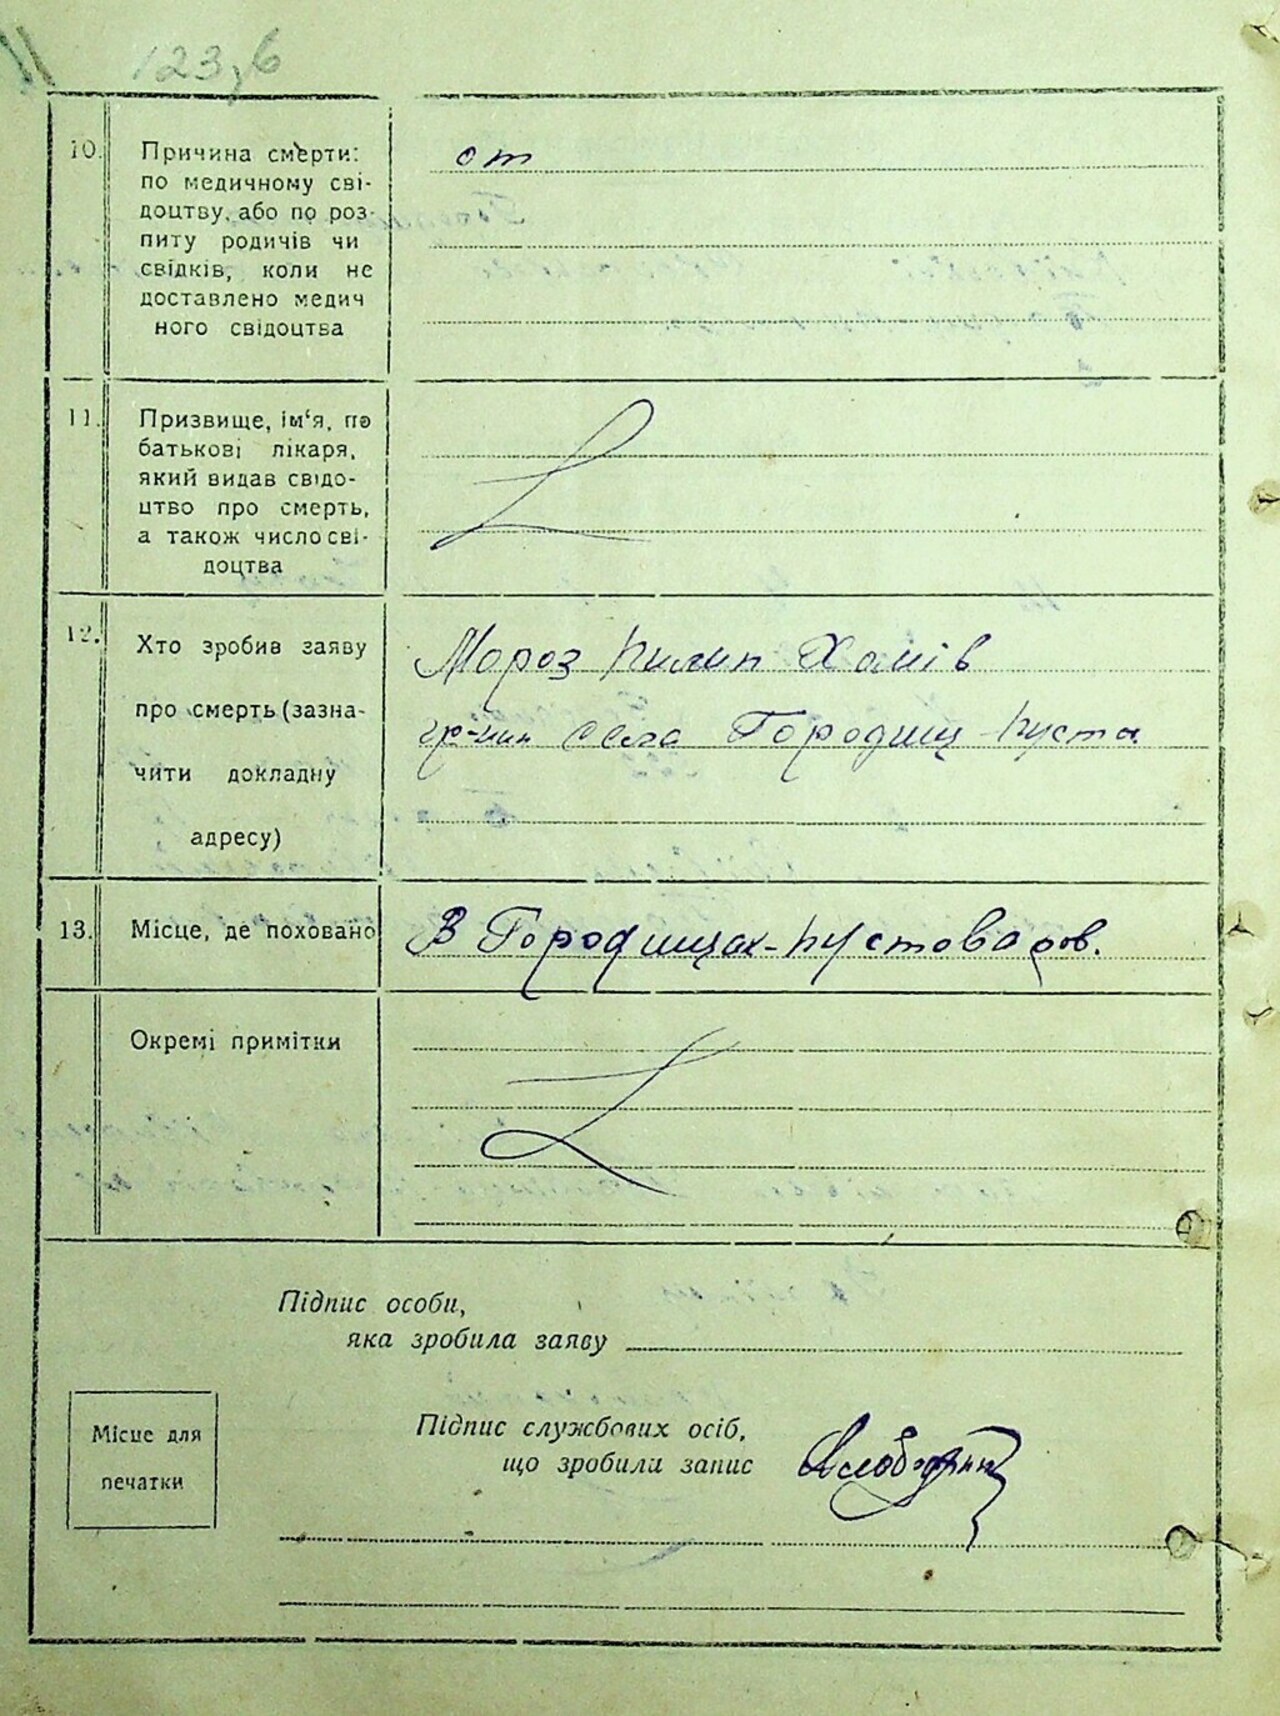 123,6
10. Причина смерти:
по медичному сві-
доцтву, або по роз-
питу родичів чи
свідків, коли не
доставлено медич
ного свідоцтва
от
11. Призвище, ім‘я, по
батькові лікаря,
який видав свідо-
цтво про смерть,
а також число сві-
доцтва
12. Хто зробив заяву
про смерть (зазна-
чити докладну
адресу)
Мороз Пилип
гр-нин села Городищ-Пуста
13. Місце, де поховано
В Городищах-Пустоваров.
Окремі примітки
Підпис особи,
яка зробила заяву
Місце для
печатки
Підпис службових осіб,
що зробили запис